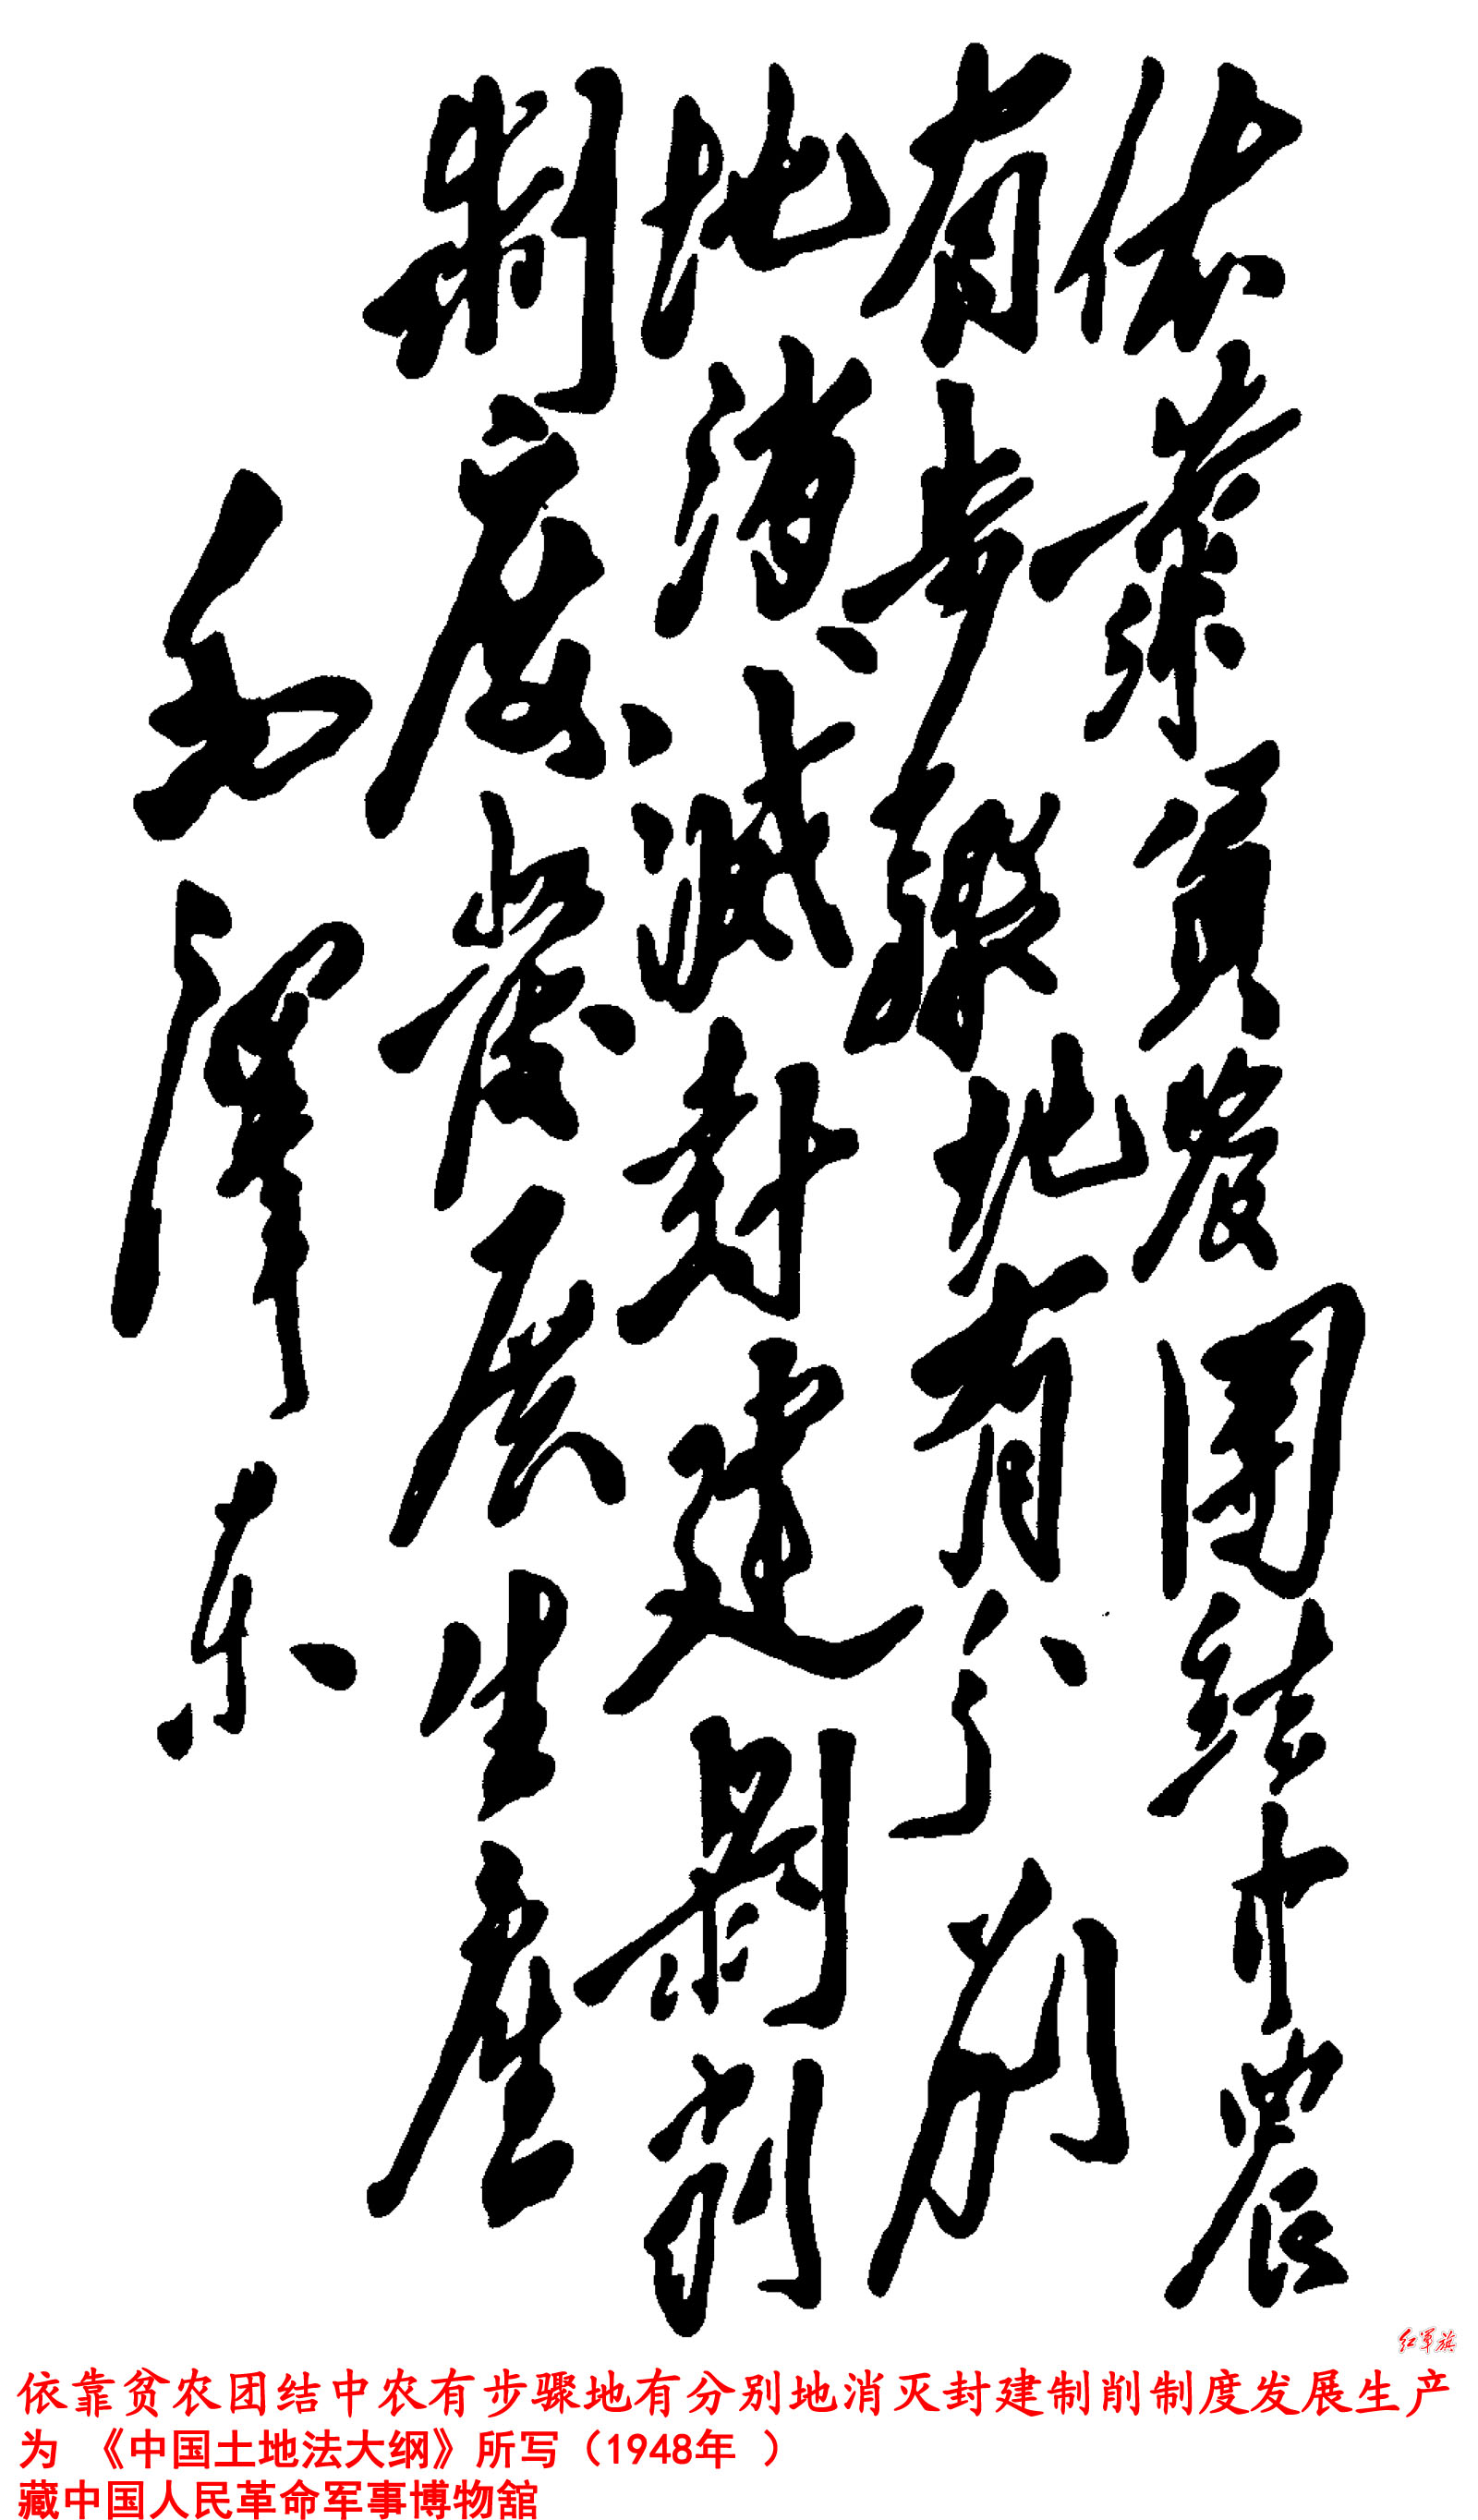 依靠貧農團結中農
有步驟地有分別
地消滅封建剝削
制度發展生產
毛澤东
红军旗
依靠贫农团结中农有步骤地有分别地消灭封建制削制度发展生产
为 《中国土地法大纲》所写（1948年 ）
藏中国人民革命军事博物舘